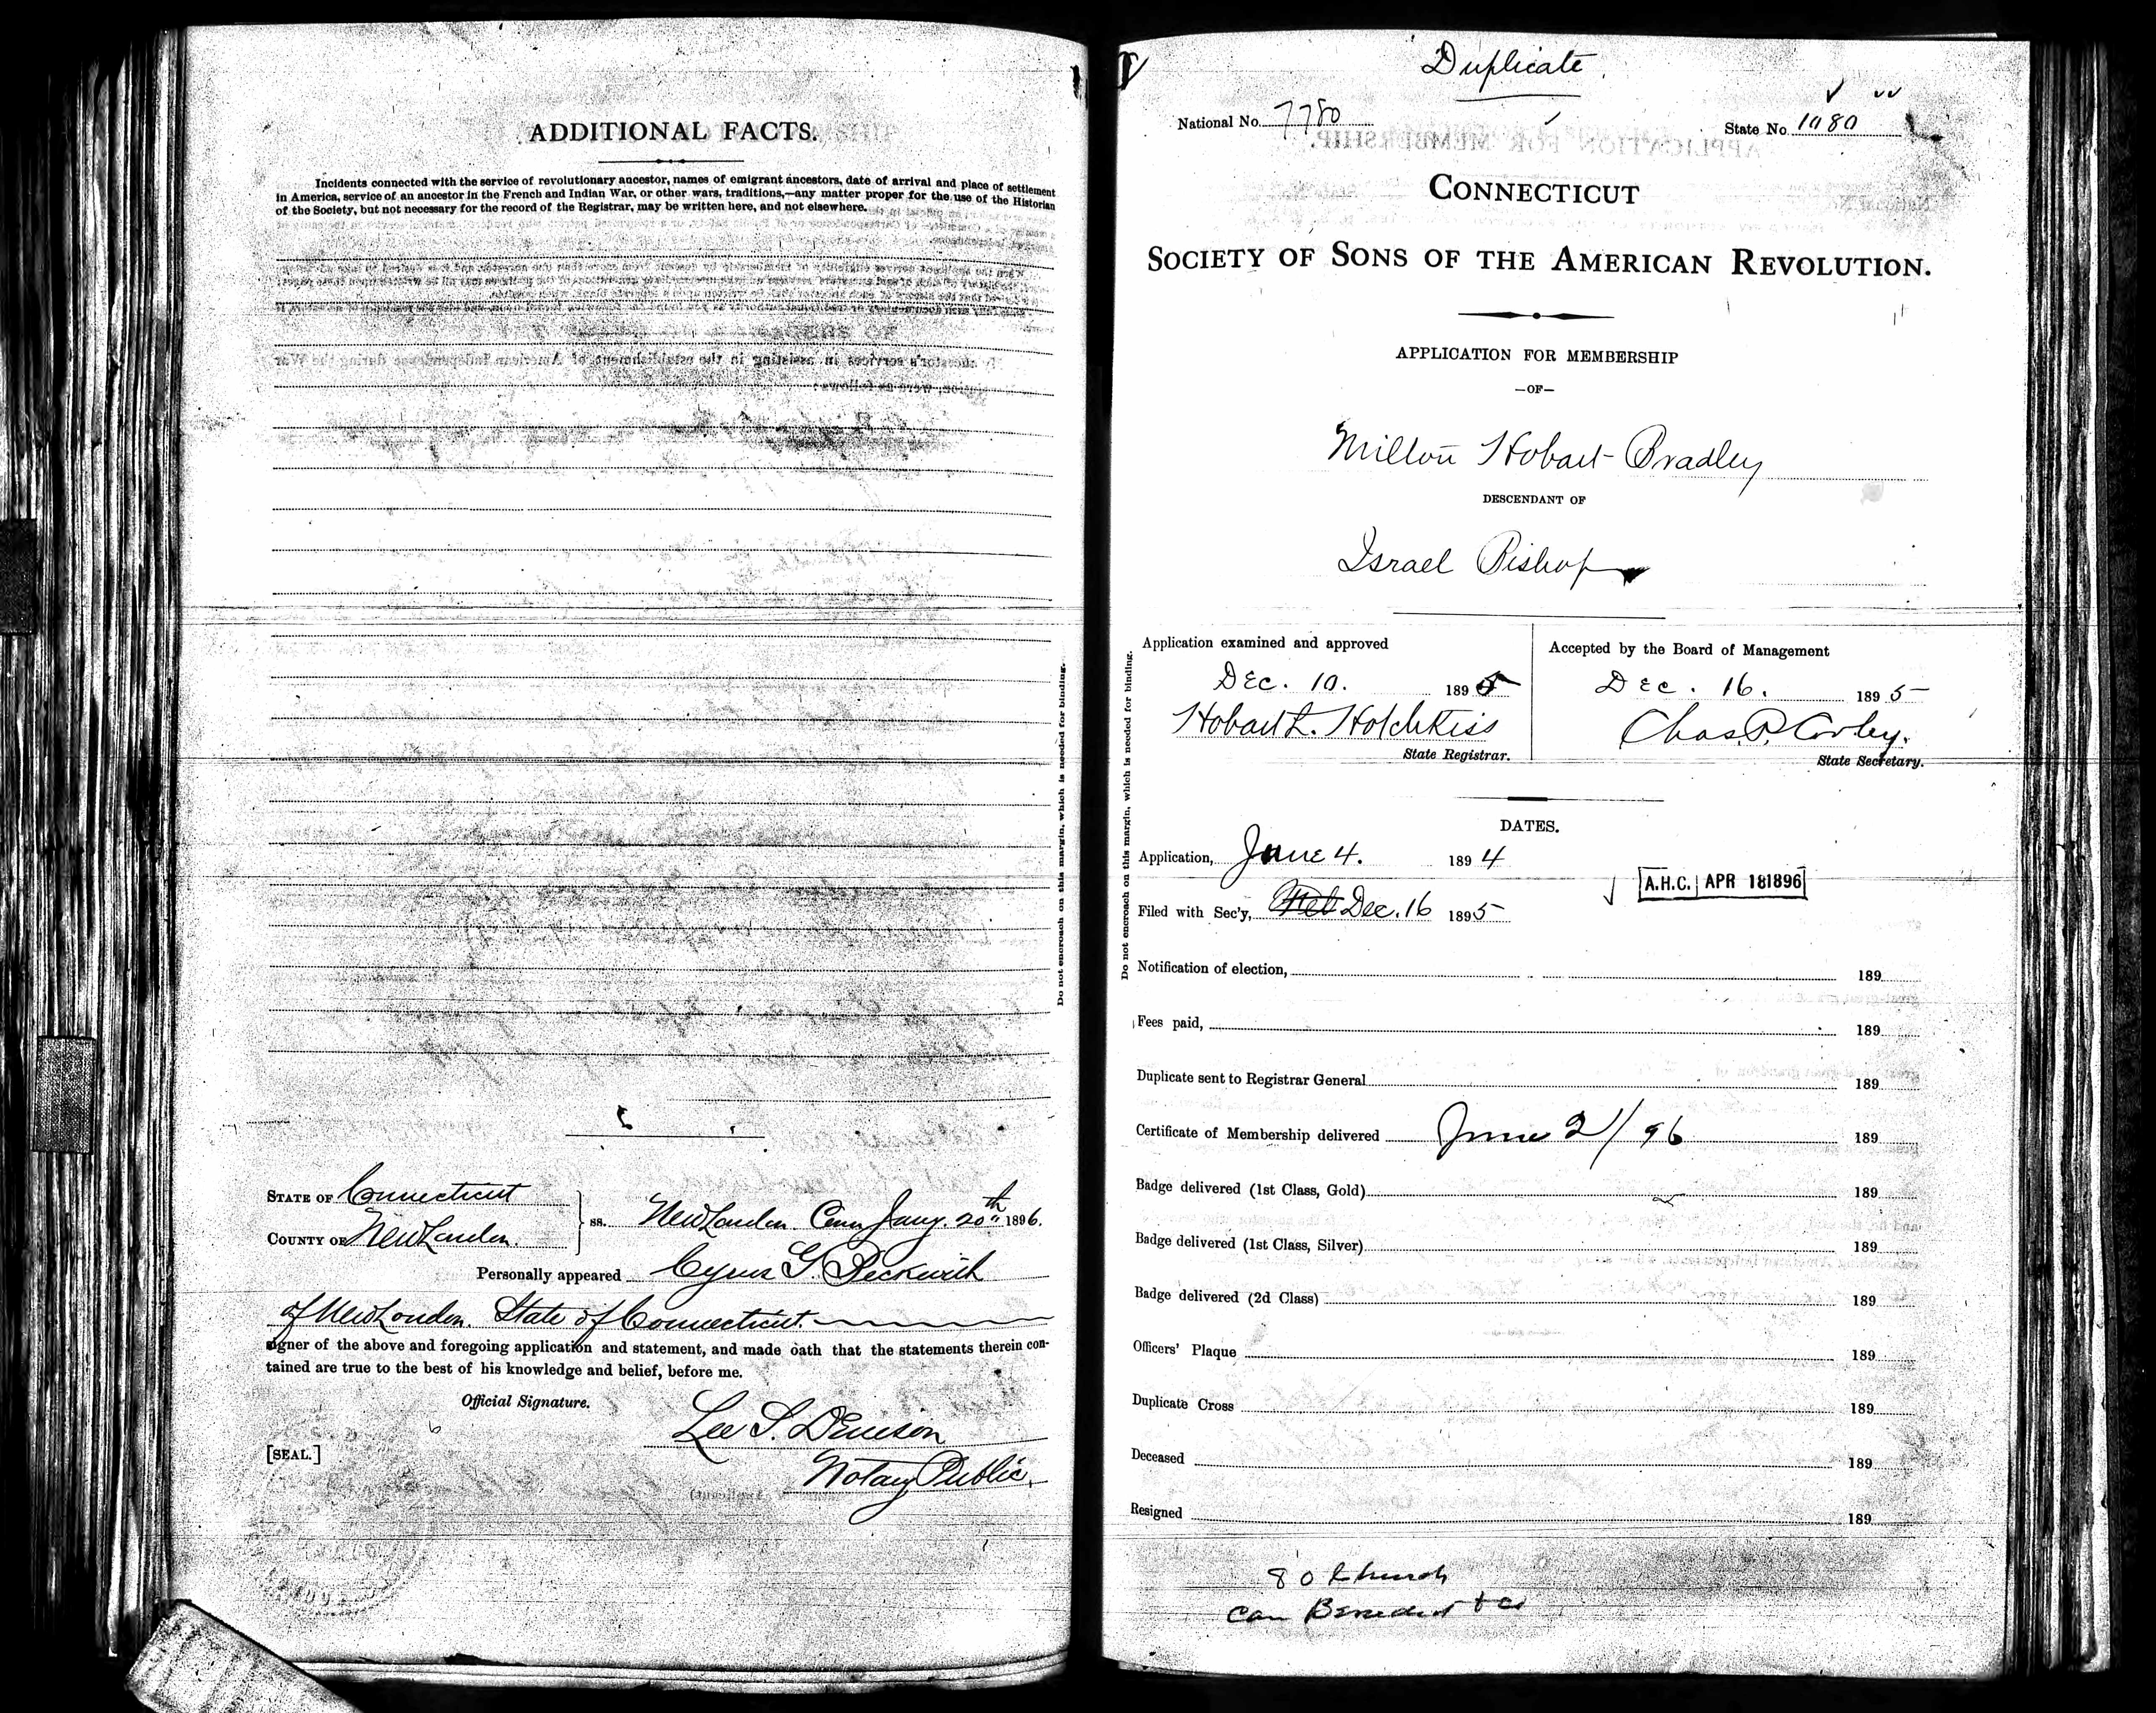 ADDITIONAL FACTS.
Incidents connected with the service of revolutionary ancestor, names of emigrant ancestors, date of arrival and place of settlement
in America, service of an ancestor in the French and Indian War, or other wars, traditions,—any matter proper for the use of the Historian
of the Society, but not necessary for the record of the Registrar, may be written here, and not elsewhere.
Do not encroach on this margin, which is needed for binding.
STATE OF Connecticut
COUNTY OF New London.
ss. New London Conn Jany. 20th 1896.
Personally appeared Cyrus G. Beckwith
of New London. State of Connecticut.
signer of the above and foregoing application and statement, and made oath that the statements therein con-
tained are true to the best of his knowledge and belief, before me.
Official Signature.
Lee S. Denison
[SEAL.]
Notary Public.
Duplicate
National No. 7780
State No. 1080
CONNECTICUT
SOCIETY OF SONS OF THE AMERICAN REVOLUTION.
APPLICATION FOR MEMBERSHIP
—OF—
Milton Hobart Bradley
DESCENDANT OF
Israel Bishop
Do not encroach on this margin, which is needed for binding.
Application examined and approved
Dec. 10. 1895
Hobart L. Hotchkiss
State Registrar.
Accepted by the Board of Management
Dec. 16. 1895
Chas. P. Cooley.
State Secretary.
DATES.
Application, June 4. 1894
A.H.C. APR 18 1896
Filed with Sec'y, Dec. 16 1895
Notification of election, 189
Fees paid, 189
Duplicate sent to Registrar General 189
Certificate of Membership delivered June 2/96 189
Badge delivered (1st Class, Gold) 189
Badge delivered (1st Class, Silver) 189
Badge delivered (2d Class) 189
Officers' Plaque 189
Duplicate Cross 189
Deceased 189
Resigned 189
80 Church
Care Benedict & Co